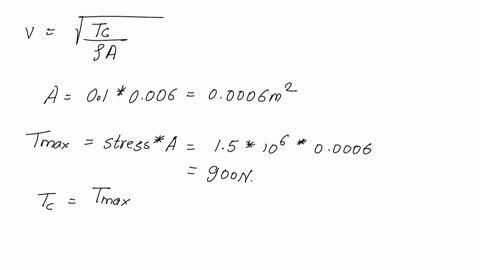 V = √(Tc / ρA)
A = 0.1 * 0.006 = 0.0006 m²
Tmax = stress * A = 1.5 * 10⁶ * 0.0006
= 900N.
Tc = Tmax